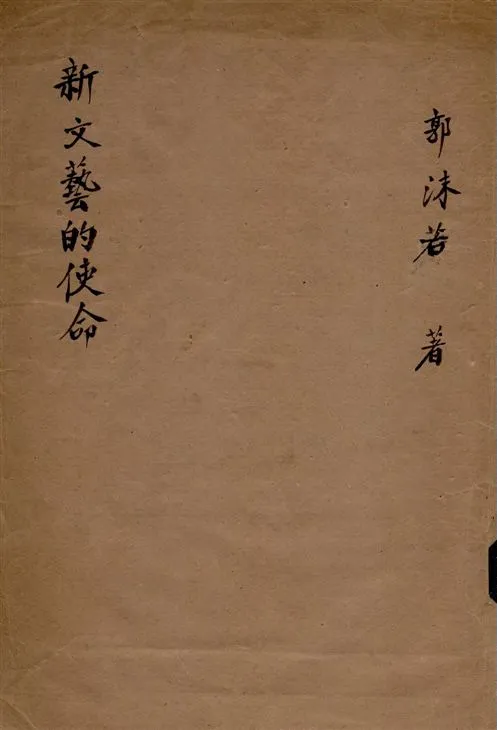 郭沫若 著
新文藝的使命